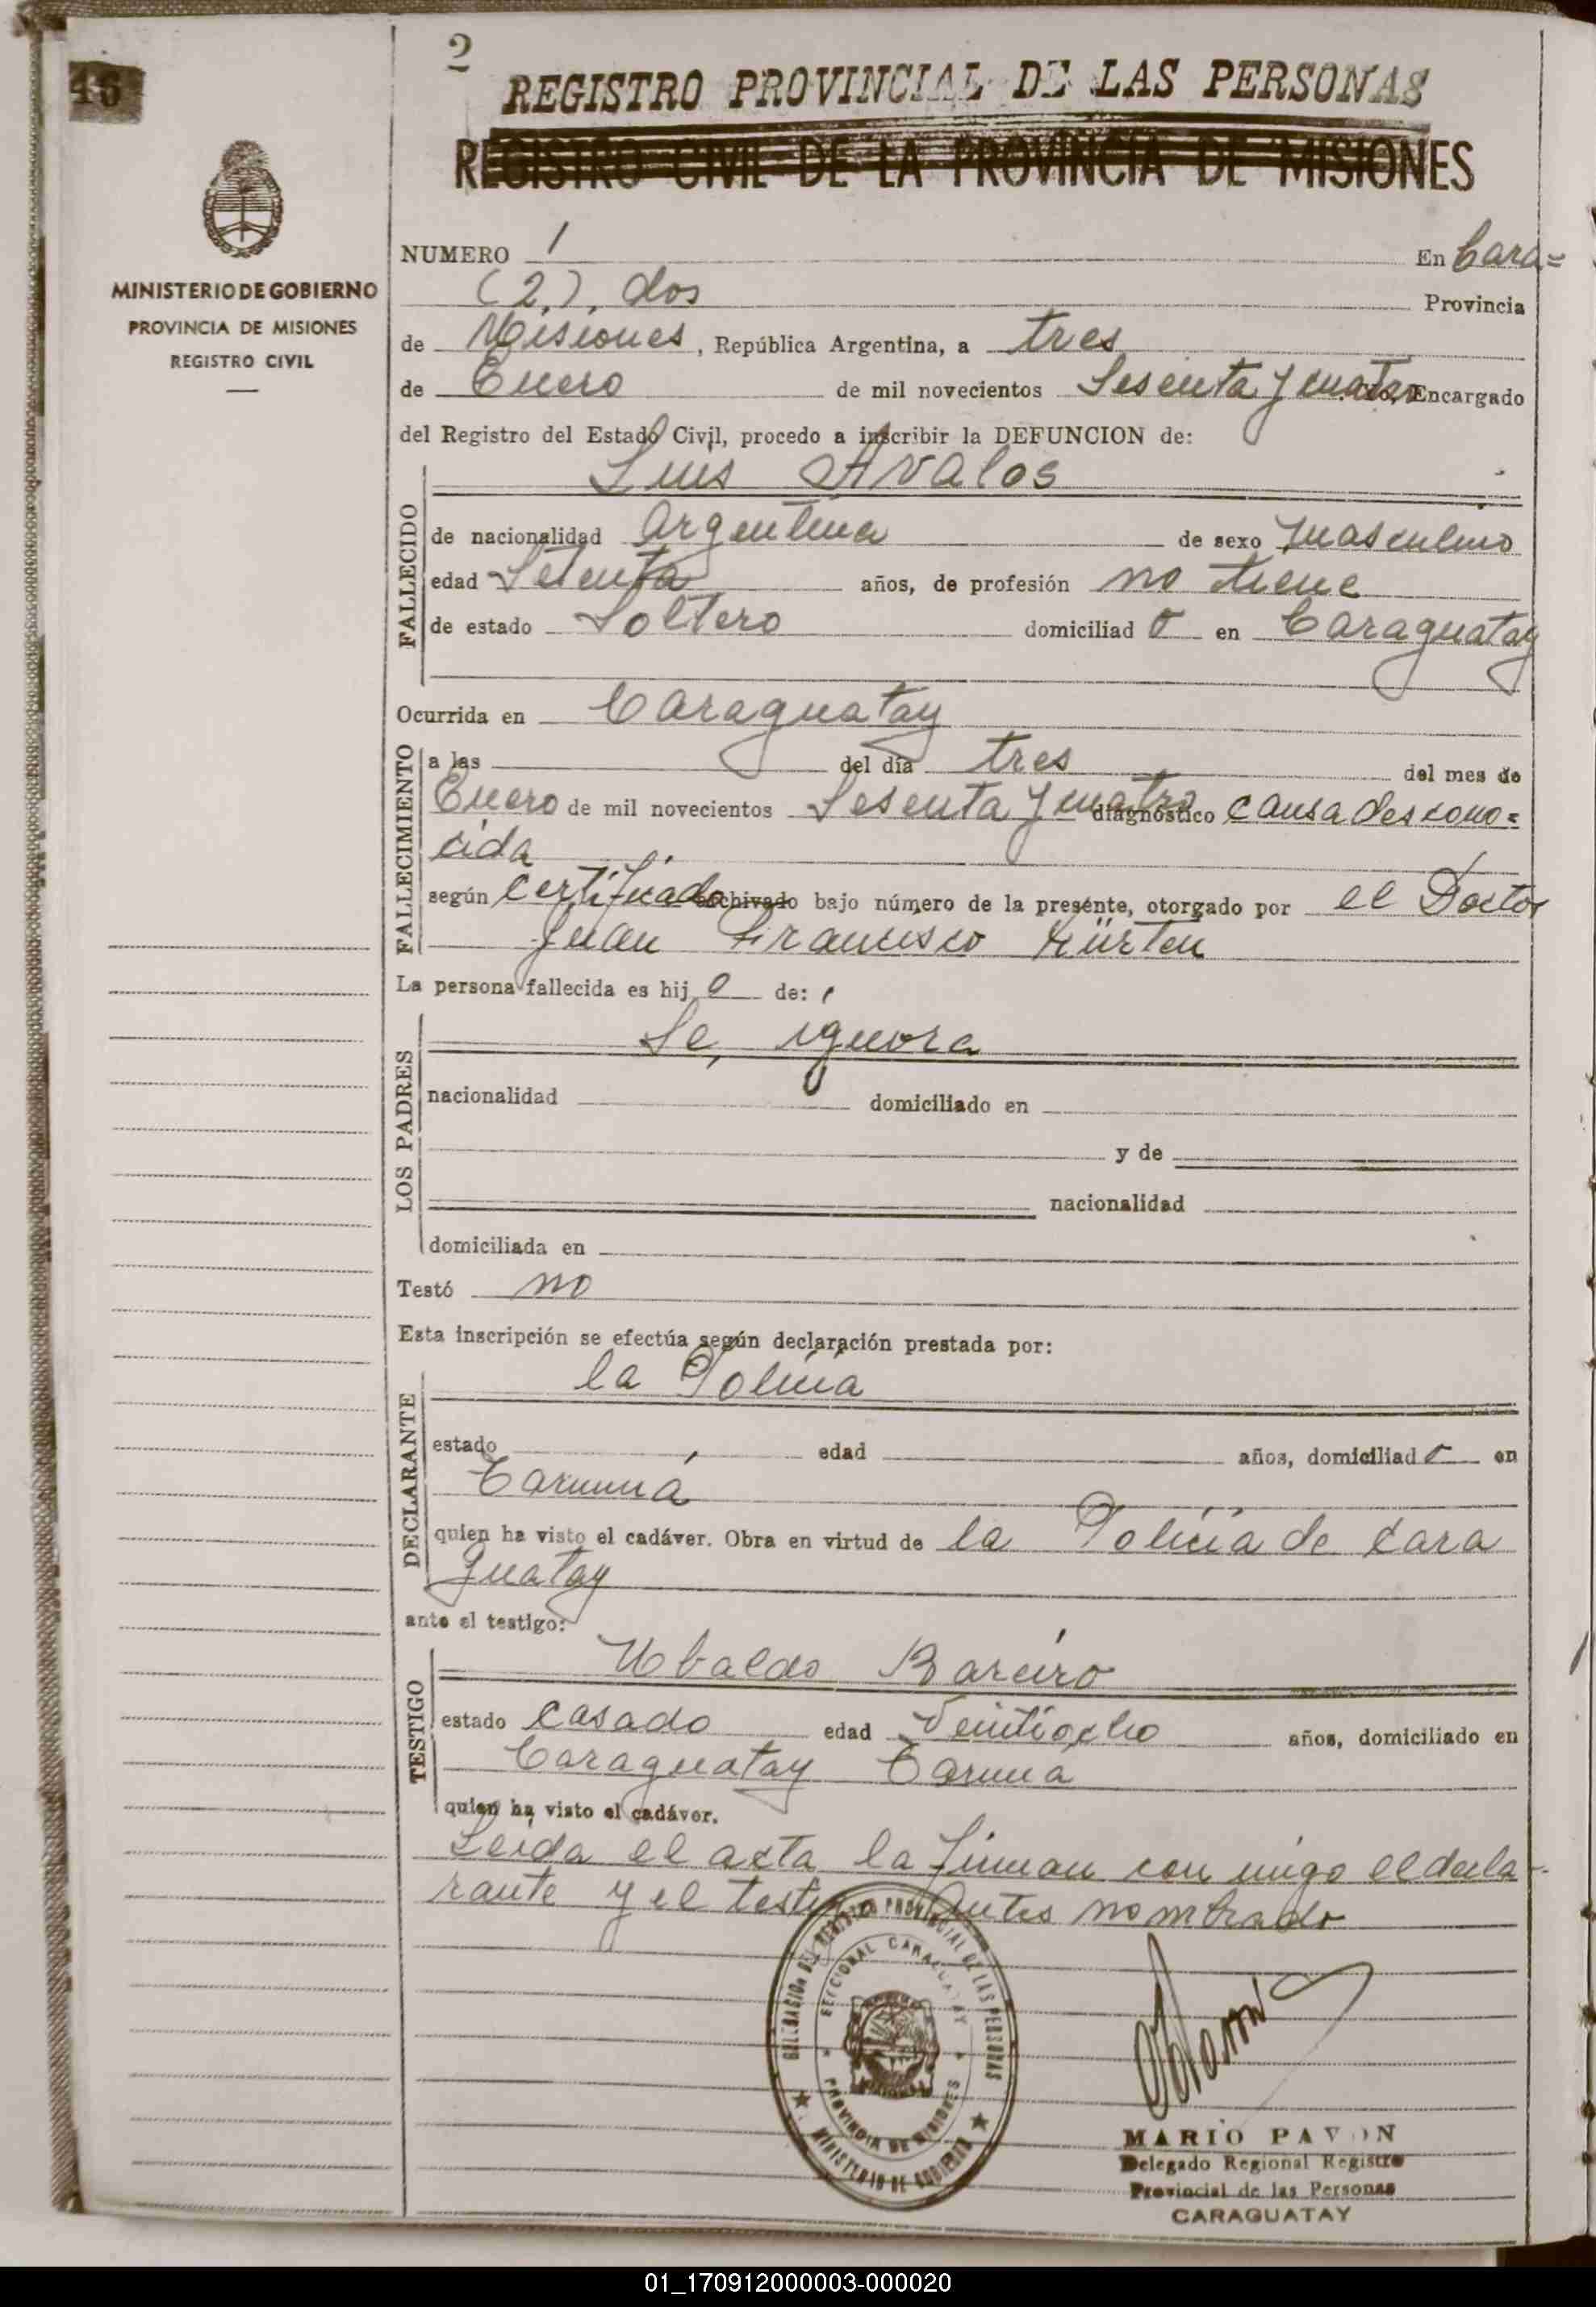 46
2
REGISTRO PROVINCIAL DE LAS PERSONAS
REGISTRO CIVIL DE LA PROVINCIA DE MISIONES
MINISTERIO DE GOBIERNO
PROVINCIA DE MISIONES
REGISTRO CIVIL
NUMERO 1 En Cara=
(2.). dos Provincia
de Misiones, República Argentina, a tres
de Enero de mil novecientos Sesenta y cuatro Yo, Encargado
del Registro del Estado Civil, procedo a inscribir la DEFUNCION de:
FALLECIDO
Luis Avalos
de nacionalidad Argentina de sexo masculino
edad Setenta años, de profesión no tiene
de estado Soltero domiciliad o en Caraguatay
Ocurrida en Caraguatay
FALLECIMIENTO
a las del día tres del mes de
Enero de mil novecientos Sesenta y cuatro diagnóstico causa descono=
cida
según certificado archivado bajo número de la presente, otorgado por el Doctor
Juan Francisco Kürten
La persona fallecida es hij o de:
LOS PADRES
Se, ignora
nacionalidad domiciliado en
y de
nacionalidad
domiciliada en
Testó no
Esta inscripción se efectúa según declaración prestada por:
DECLARANTE
la Policia
estado edad años, domiciliad o en
quien ha visto el cadáver. Obra en virtud de la Policía de Cara
guatay
ante el testigo:
TESTIGO
Ubaldo Bareiro
estado casado edad Veintiocho años, domiciliado en
Caraguatay
quien ha visto el cadáver.
Leida el acta la firman con migo el decla-
rante y el testigo Antes nombrado
DELEGACION DEL REGISTRO PROVINCIAL DE LAS PERSONAS
SECCIONAL CARAGUATAY
PROVINCIA DE MISIONES
MINISTERIO DE GOBIERNO
MARIO PAVON
Delegado Regional Registro
Provincial de las Personas
CARAGUATAY
01_170912000003-000020